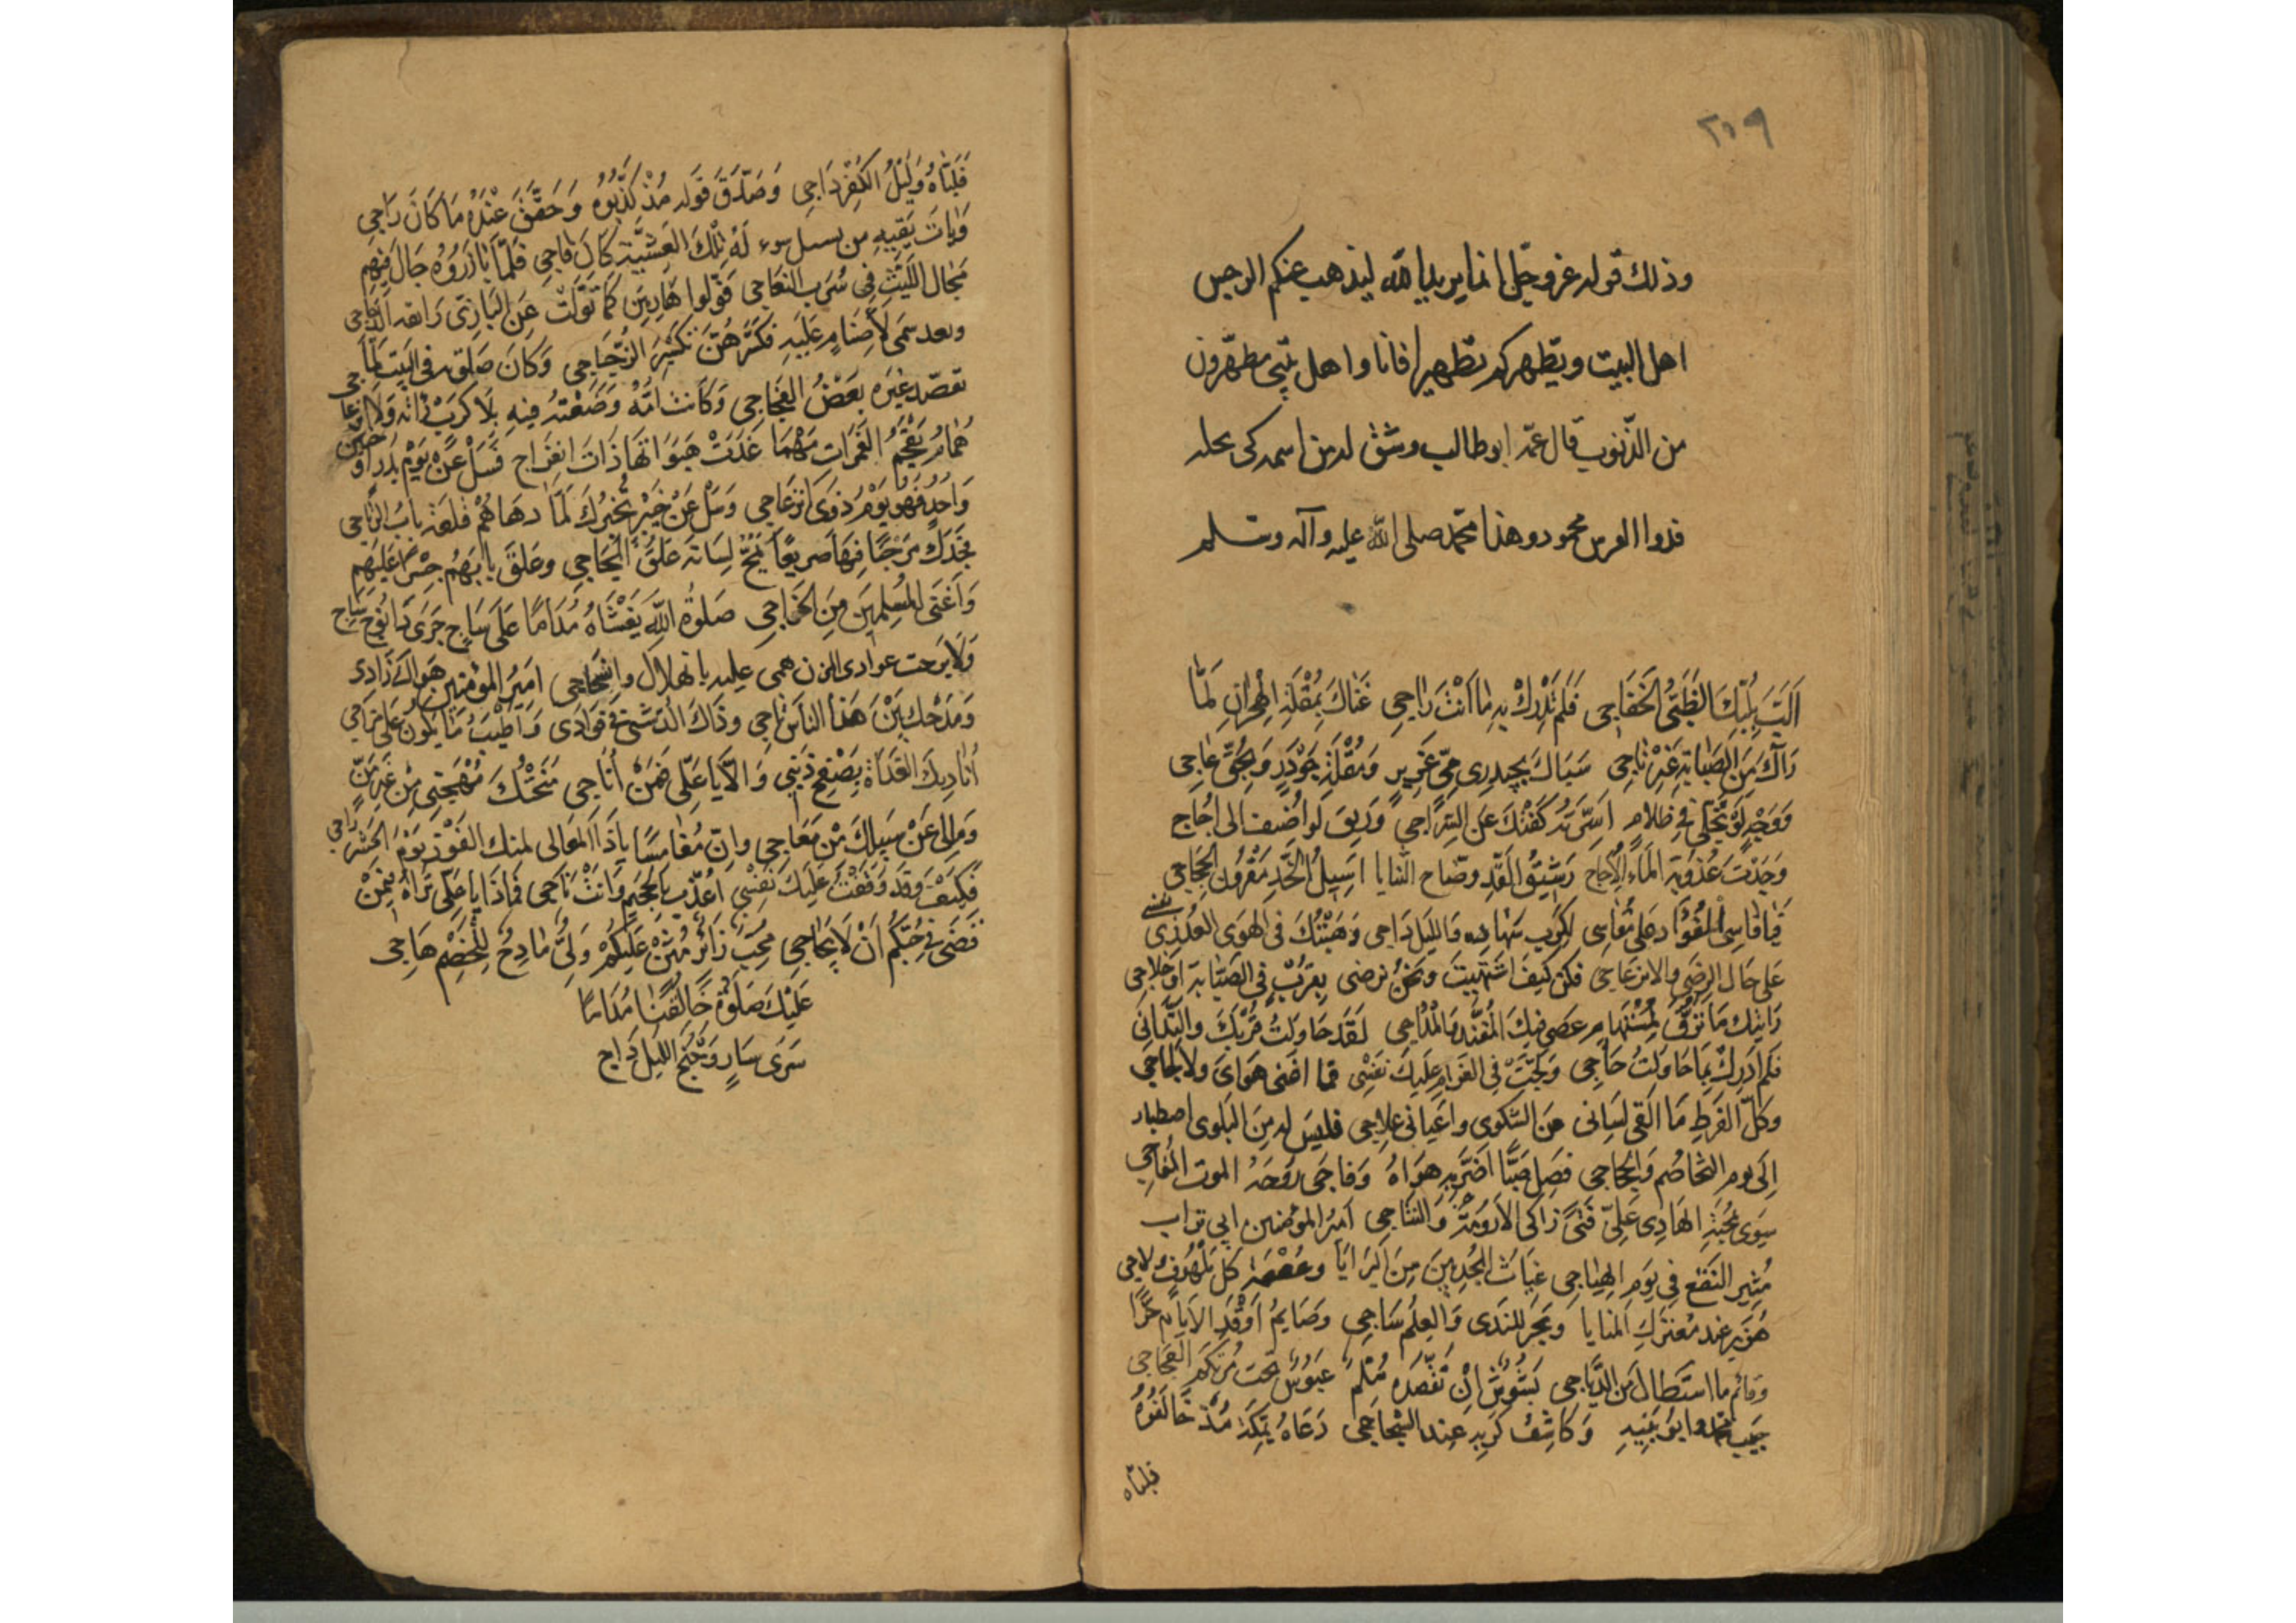 ٢٠٩
وذلك قوله عزوجل انما يريد الله ليذهب عنكم الرجس
اهل البيت ويطهركم تطهيرا فانا واهل بيتي مطهرون
من الذنوب قال عمه ابو طالب وشق له من اسمه كي يجله
فذوا العرش محمود وهذا محمد صلى الله عليه وآله وسلم
اَلَبَّ بِلُبِّكَ الظَّبْيُ الخَفَاجِي فَلَمْ تُدْرِكْ بِهِ مَا اَنْتَ رَاجِي عَنَاكَ بِمُقْلَةِ الهِجْرَانِ لَمَّا
رَآكَ مِنَ الصَّبَابَةِ غَيْرَ نَاجِي سَبَاكَ بِجِيدِ رِيمٍ غَرِيرٍ وَمُقْلَةِ جُؤْذَرٍ وَبِحُقِّ عَاجِي
وَوَجْهٍ لَوْ تَجَلَّى فِي ظَلَامٍ اَسِرَّتُهُ كَفَتْكَ عَنِ السِّرَاجِي وَرِيقٍ لَو اُضيف الى اُجَاج
وَجَدْتَ عُذُوبَةَ المَاءِ الاُجاج رَشِيقُ القَدِّ وضّاح الثنايا اَسِيلُ الخَدِّ مَقْرُونُ الحِجَاجِي
فَيا قَاسِي الفُؤَادِ على مُقَاسِي لكرب سهاده والليل داجي وَهَبْتُكَ في الهوَى العُذْرِيّ نفسي
عَلى حَال الرِضَى والانزعَاجِي فكن كيفَ اشْتَهَيْتَ ونَحْنُ نرضى بِقُرْبٍ فِي الصَّبَابَةِ او خلاجي
رَايتك مَا تَرِقُّ لِمُسْتَهَامٍ عصى فيك المُفَنِّدَ وَالمُدَاجِي لَقَد حَاوَلتُ قُرْبَكَ والتَّدَانِي
فَلَم اُدرِكْ بِمَا حَاوَلتُ حَاجِي وَلَجَّتْ فِي الغَرَامِ عَلَيكَ نَفْسِي فما اغنى هَوَايَ ولا لجَاجِي
وَكَلَّ لفَرطِ مَا اَلْقَى لِسَانى مِنَ الشكوى واَعيانى عِلَاجى فليس له مِنَ البَلوى اصطبار
اِلَى يوم التخاصُم وَالحِجَاجِي فَصِل صَبًّا اَضَرَّ بِهِ هَوَاهُ وَفاجَى روحَهُ الموت المُفاجِي
سِوَى مَحَبَّةِ الهَادِى عَلِيّ فَتًى زاكى الاَرُومَةِ وَالنَّتَاجِى اَميرُ المؤمنين ابي تراب
مُثِيرِ النَّقْعِ فِي يَومِ الهِيَاجِي غِيَاثُ المُجدِبِينَ مِنَ البَرَايَا وعِصْمَة كل مَلْهُوفٍ لاجي
هُزَبر عند مُعْتَرَكِ المنايا وبَحر للندى وَالعِلْمِ سَاجِي وصَايمُ اَوقَدِ الاَيَّامِ حَرًّا
وقائم ما استطال من الدَّيَاجِي بَشُوشٌ اِنْ تُقَصِّدهُ عَبُوسٌ تحت مُرتَكَم العَجَاجِي
حَبيب محمد وابو بَنِيهِ وَكَاشِفُ كَربِهِ عِند الشِجَاجِى دَعَاهُ بِمَكَّة مُذْ خَالَفُوهُ
فلباه
فَلَبَّاهُ وَلَيْلُ الكُفْرِ دَاجِي وَصَدَّقَ قَولَه مُذْ كَذَّبُوهُ وَحَقَّقَ عِنْدَهُ مَا كَانَ رَاجِي
وَبَاتَ يَقِيهِ من سوء لَهُ تِلْكَ العَشِيَّةِ كَانَ فَاجِي فَلَمَّا بَادَرُوهُ جَال فِيهِم
مَجَال اللَّيْثِ فِي سَرْبِ النِّعَاجِي فَوَلَّوا هَارِبِينَ كَمَا تَوَلَّتْ عَنِ البَازِيِّ رَائعة الدَّجَاجِي
وبعد سمى لِأَصْنَامٍ عَلَيْهِ فَكَسَّرَهُنَّ تَكْسِيرَ الزُّجَاجِي وَكَانَ صَلَاتُه فِي البَيتِ لَمَّا
تعمّد غَيْرَهُ بَعْضُ الفِجَاجِي وَكَانَت اُمُّهُ وَضَعَتْهُ فِيهِ بِلَا كَرْبٍ وَلَا انزعاجي
هُمَامٌ يَقْحُمُ الغَمَرَاتِ مَهْمَا غَدَتْ هَبَوَاتُهَا ذَاتَ انفِرَاج فَسَلْ عَنْ يَوْمِ بدر او حنين
وَاُحْدٍ فَهوَ يَوْمُ ذَوِى انزعَاجِي وَسَلْ عَنْ خَيْبَرٍ تُخْبِرْكَ لَمَّا دهَاهُمْ قلعة بَابَ الرِّتَاجِي
تَجَدَّلَ مَرْحَبًا فِيهَا صَرِيعًا يَمُجُّ لِسَانَهُ عَلَقَ المَجَاجِي وعَلَّقَ بَابَهُم جِسْرًا عَلَيْهِم
وَاَغْنَى المُسْلِمِينَ مِنَ الخَرَاجِي صَلوةُ اللهِ يَغْشَاهُ مُدَامًا عَلَى سَاجٍ جَرَى سَاج
وَلَا بَرحت عوادى المزن همى عليه بانهلال وانثجاجي اميرُ المؤمنين هواك زَادى
وَمَدحك بَيْنَ هَذَا النَّاس تاجي وذاك الدشتى فؤادى وَاَطْيَبُ مَا يَكُونُ عَلَى مزاجي
اُنَادِيكَ الغَدَاةَ بِصَفْحِ ذَنْبِي وَالَّا يَا عَلِيُّ فَمَنْ اُنَاجِي مَنَحْتُكَ مُهْجَتِي مِنْ غَيْرِ مَنٍّ
وَمَالِى عَنْ سَبِيلِكَ مِنْ مَعَاجِي وانّ مُغَامِسًا يَاذَا المَعَالى لمنك الفَوزَ يَوْمَ الحَشر راجي
فَكَيفَ وَقَد وَقَفْتُ عَلَيكَ نَفْسِي اُعَذَّبُ بالجَحِيمِ وَانتَ نَاجى فَمَاذَا يَا عَلِيُّ تَرَاهُ فِيمَنْ
قضَى فِي حُبِّكُم اَنْ لَا يُحَاجِي مُحِبٌّ زَائرٌ مُثْنٍ عَلَيكُم وَلِيٌّ مَادِحٌ لِلخَصْمِ هَاجِى
عَلَيْكَ صَلوةُ خَالِقِنَا مُدَامًا
سَرَى سَارٍ وَجُنْحُ اللَّيْلِ دَاج